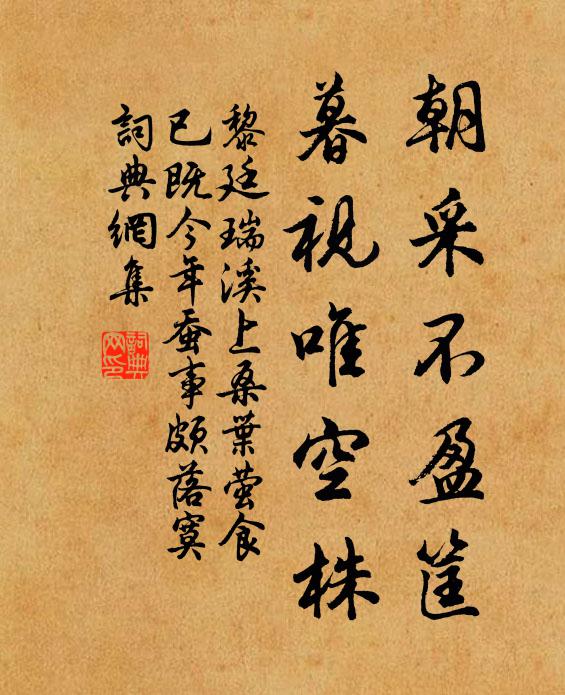 朝采不盈筐
暮視唯空株
黎廷瑞溪上桑葉蚩食
已既今年蚕事頗落寞
詞典網集
詞典
网印